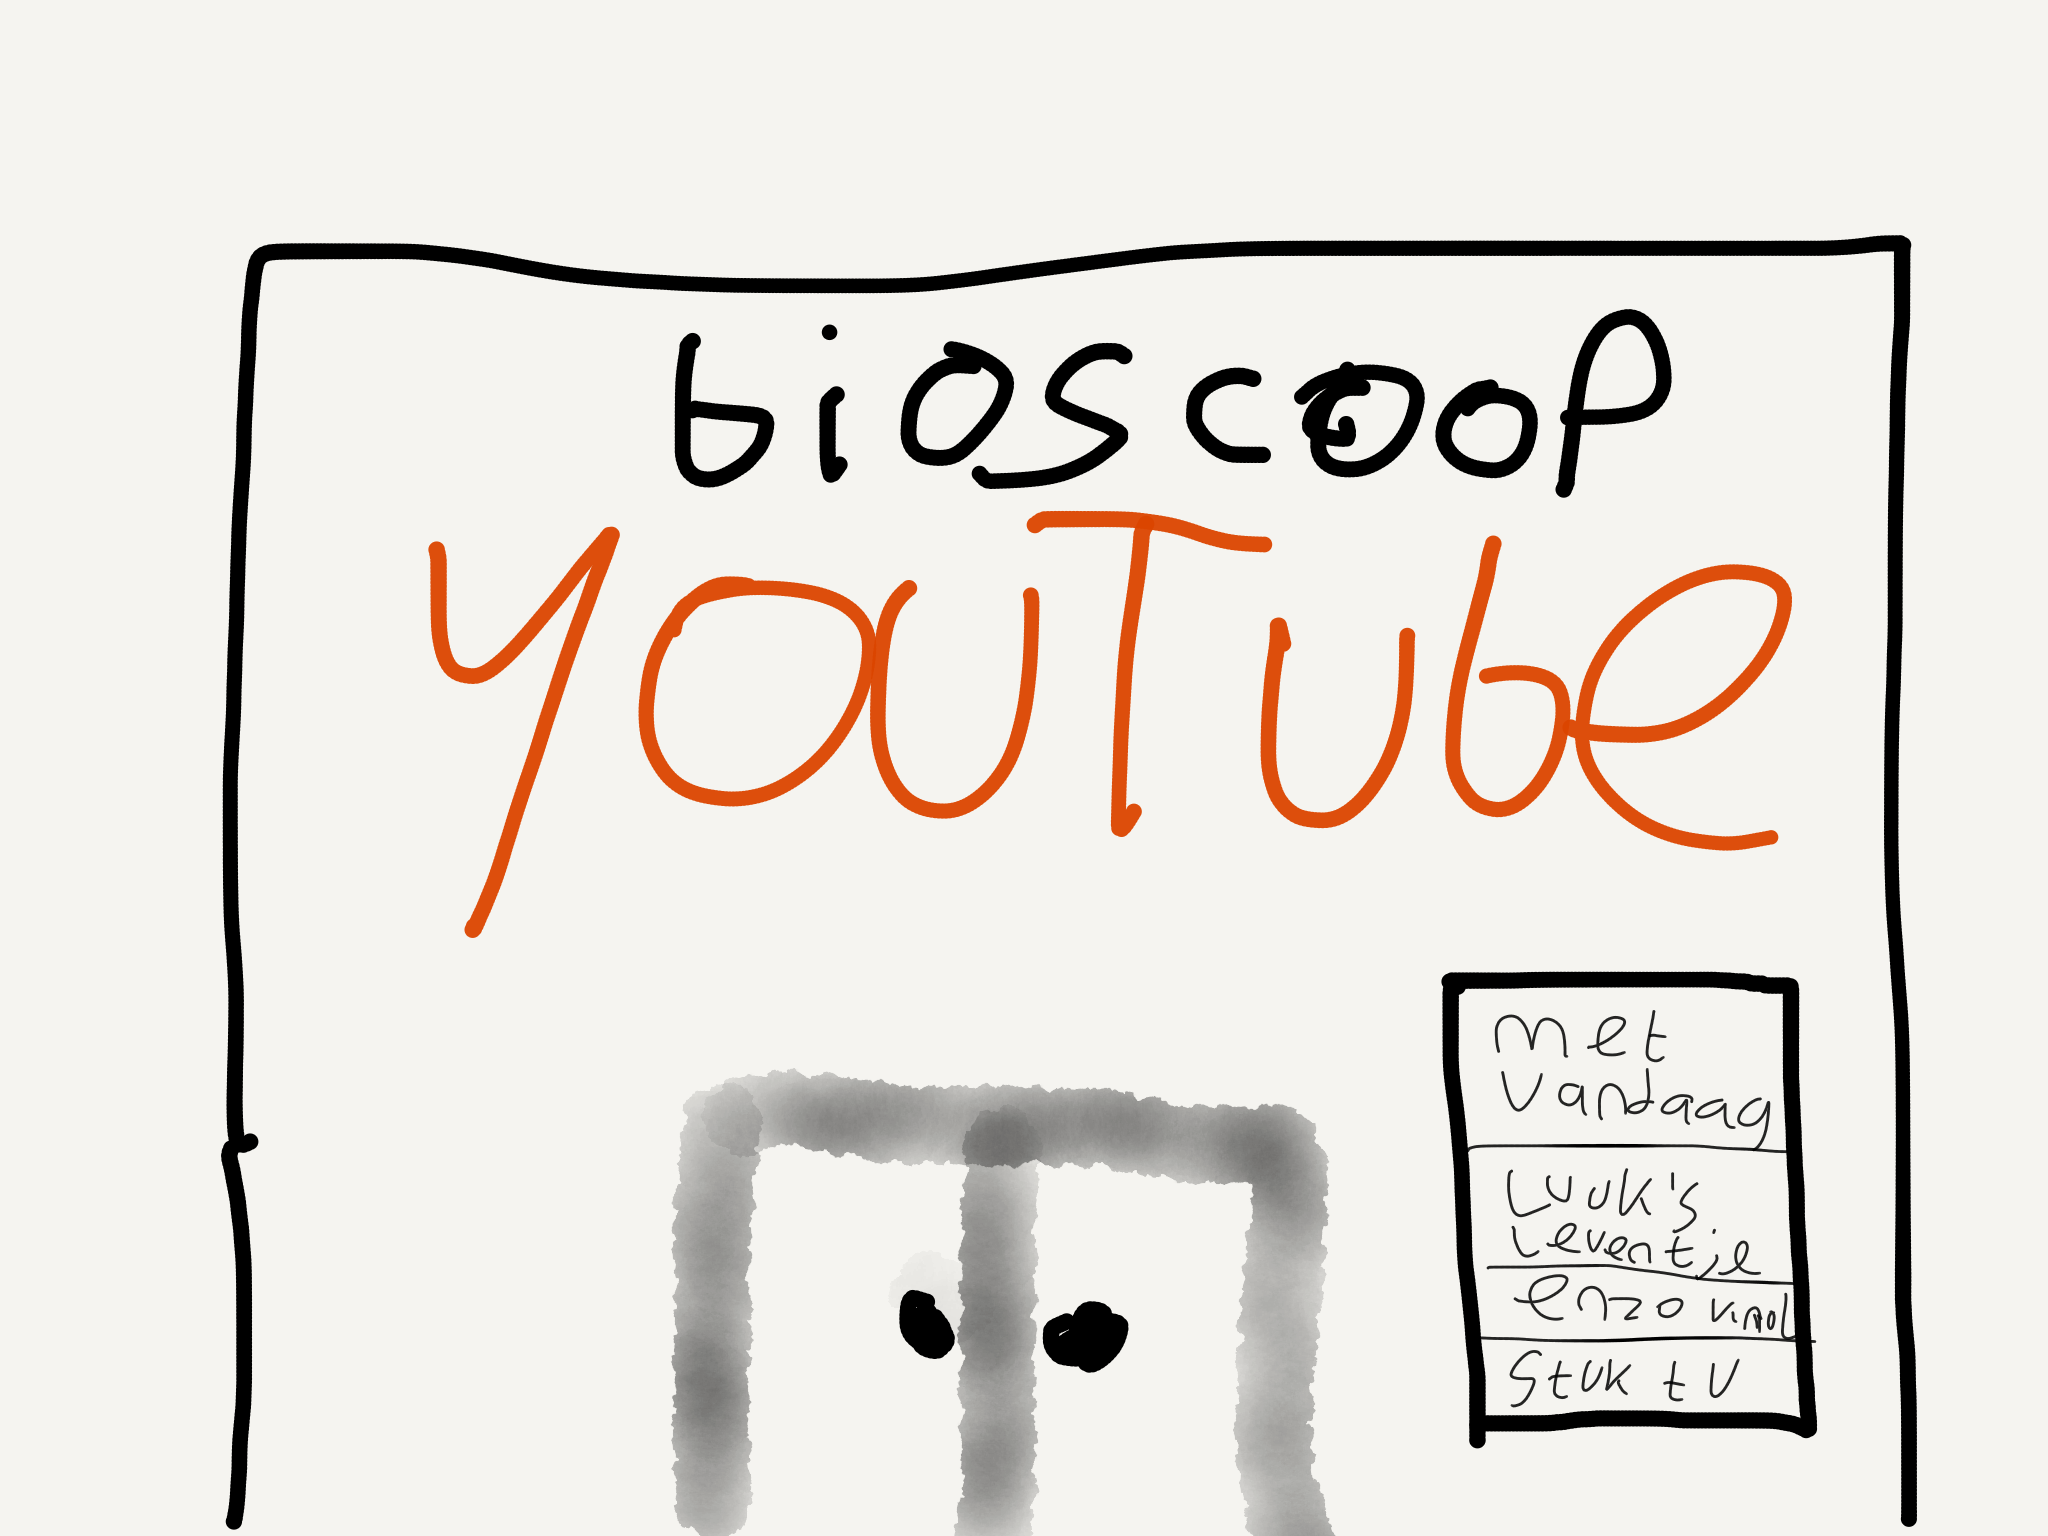 bioscoop
YouTube
met
vandaag
Luuk's
Leventje
enzo
Stuk tv